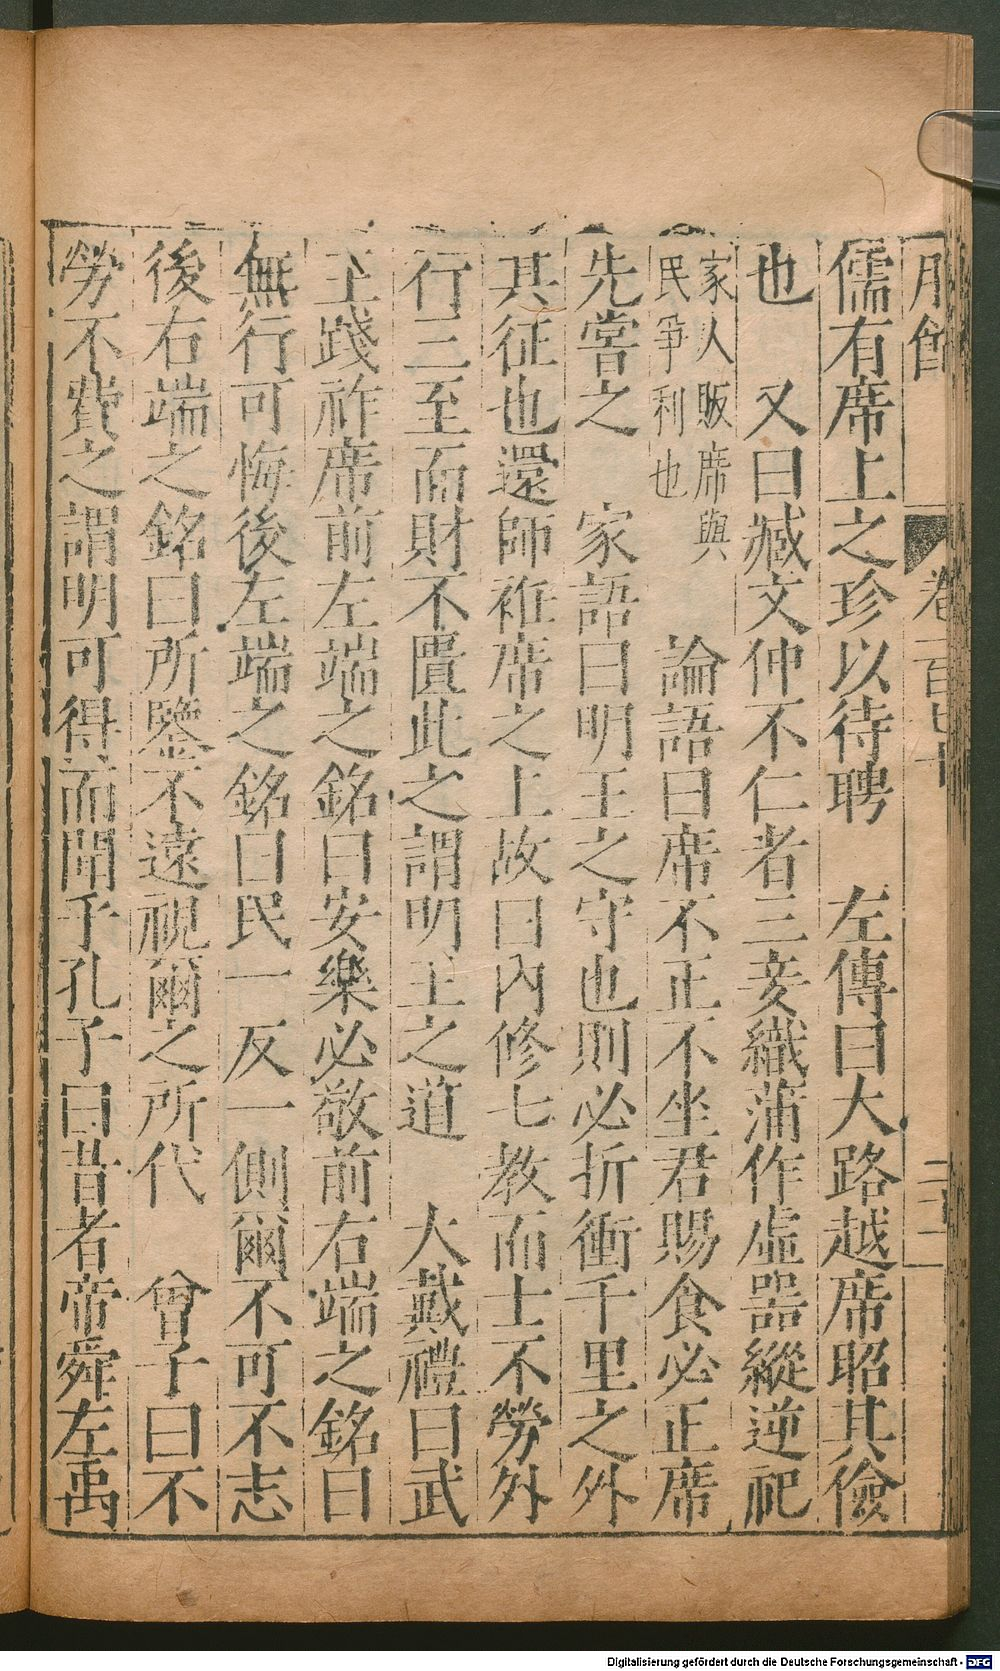 卷一百七十
二十一
儒有席上之珍以待聘　左傳曰大路越席昭其儉
也　又曰臧文仲不仁者三妾織蒲作虛器縱逆祀
家人販席與
民爭利也
論語曰席不正不坐君賜食必正席
先嘗之　家語曰明王之守也則必折衝千里之外
其征也還師袵席之上故曰內修七教而士不勞外
行三至而財不匱此之謂明王之道　大戴禮曰武
王踐祚席前左端之銘曰安樂必敬前右端之銘曰
無行可悔後左端之銘曰民一反一側爾不可不志
後右端之銘曰所鑒不遠視爾之所代　曾子曰不
勞不費之謂明可得而聞乎孔子曰昔者帝舜左禹
Digitalisierung gefördert durch die Deutsche Forschungsgemeinschaft - DFG